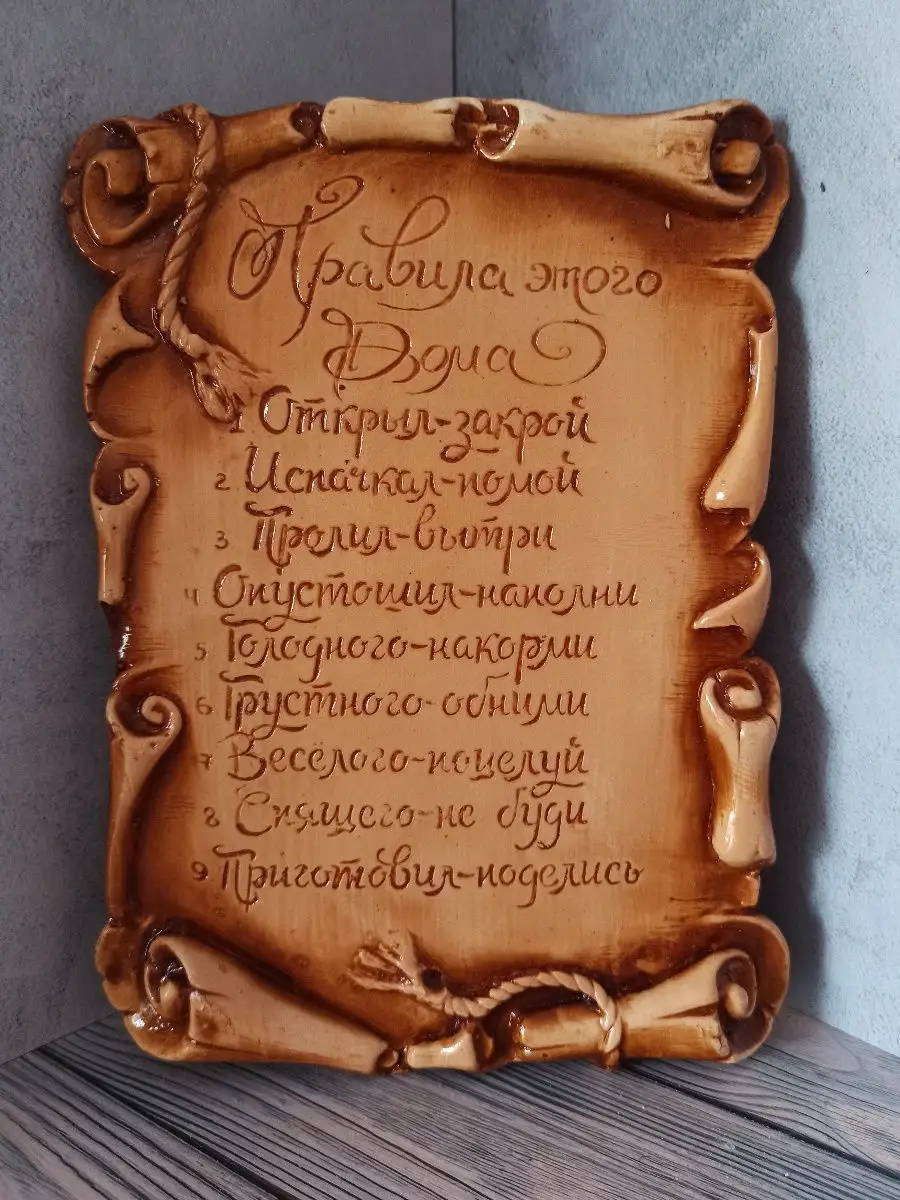 Правила этого
Дома
1 Открыл-закрой
2 Испачкал-помой
3 Пролил-вытри
4 Опустошил-наполни
5 Голодного-накорми
6 Грустного-обними
7 Весёлого-поцелуй
8 Спящего-не буди
9 Приготовил-поделись